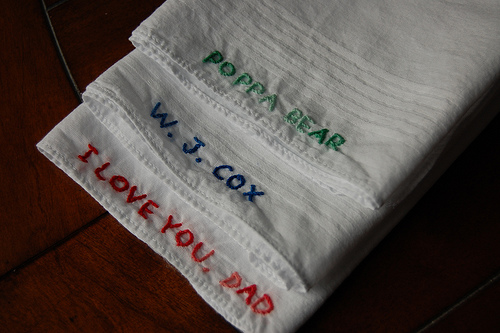 POPPA BEAR
W. J. COX
I LOVE YOU, DAD